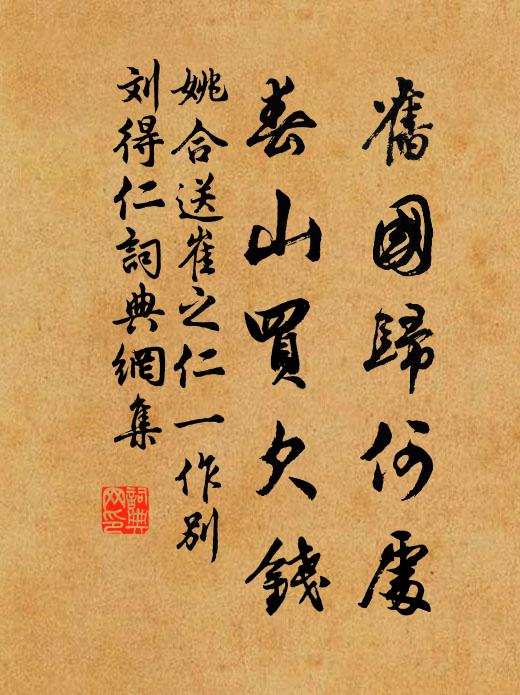 舊國歸何處
春山買欠錢
姚合送崔之仁一作別
刘得仁詞典網集
詞典
网印